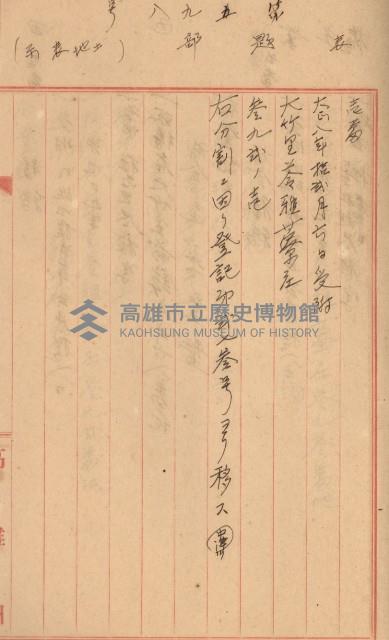 表題部
第五九八号
（土地表示）
壱番
大正八年拾弐月六日受附
大竹里苓雅藔庄
叁九弐ノ壱
右分割ニ因リ登記第叁号ヨリ移ス
高雄市立歷史博物館
KAOHSIUNG MUSEUM OF HISTORY
高雄州